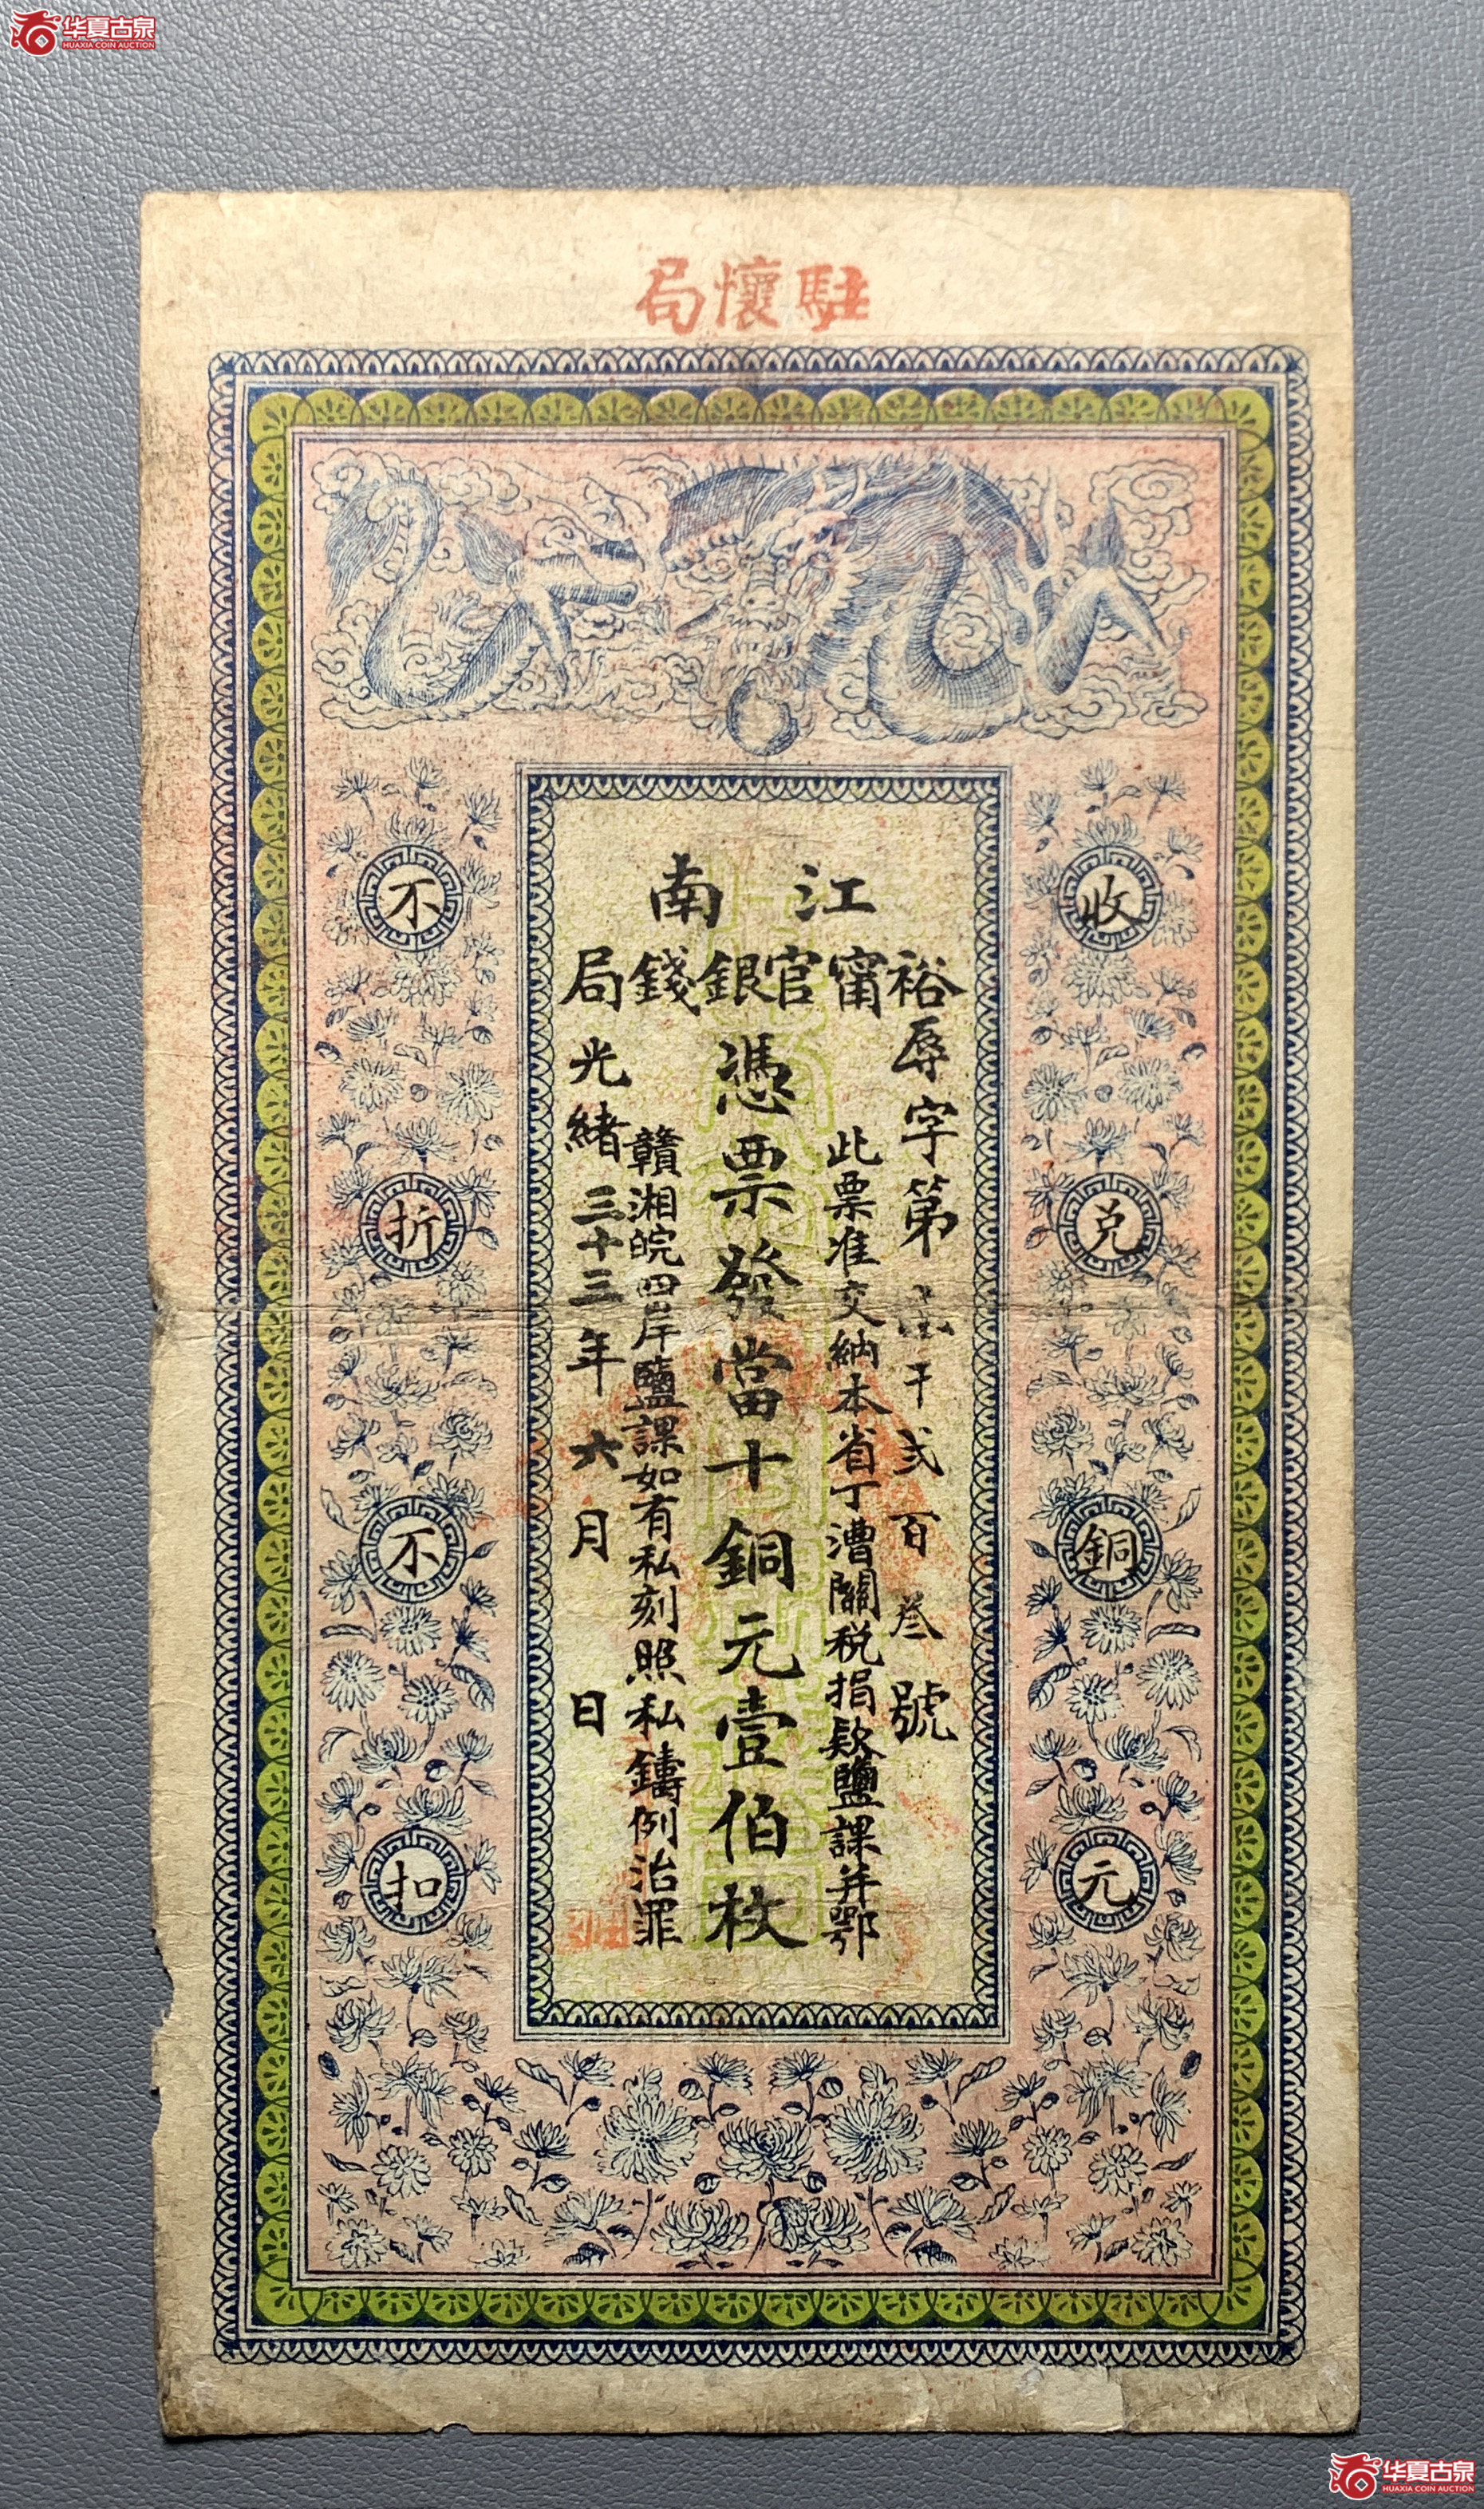 华夏古泉
HUAXIA COIN AUCTION
駐懷局
江南
裕甯官銀錢局
辱字第 千弍百叁號
此票准交納本省丁漕關税捐欵鹽課并鄂
憑票發當十銅元壹伯枚
贛湘皖四岸鹽課如有私刻照私鑄例治罪
光緒三十三年六月日
收兑銅元
不折不扣
华夏古泉
HUAXIA COIN AUCTION